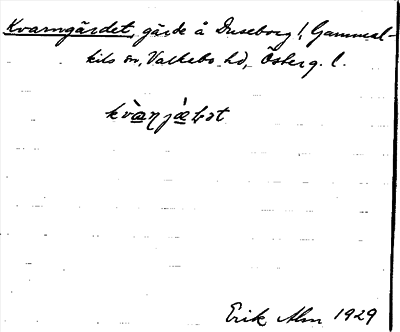 Kvarngärdet, gärde å Duseborg, Gammal-
kils sn, Valkebo hd, Österg. l.
kvàṇjæ̀ḷət
Erik Alm 1929